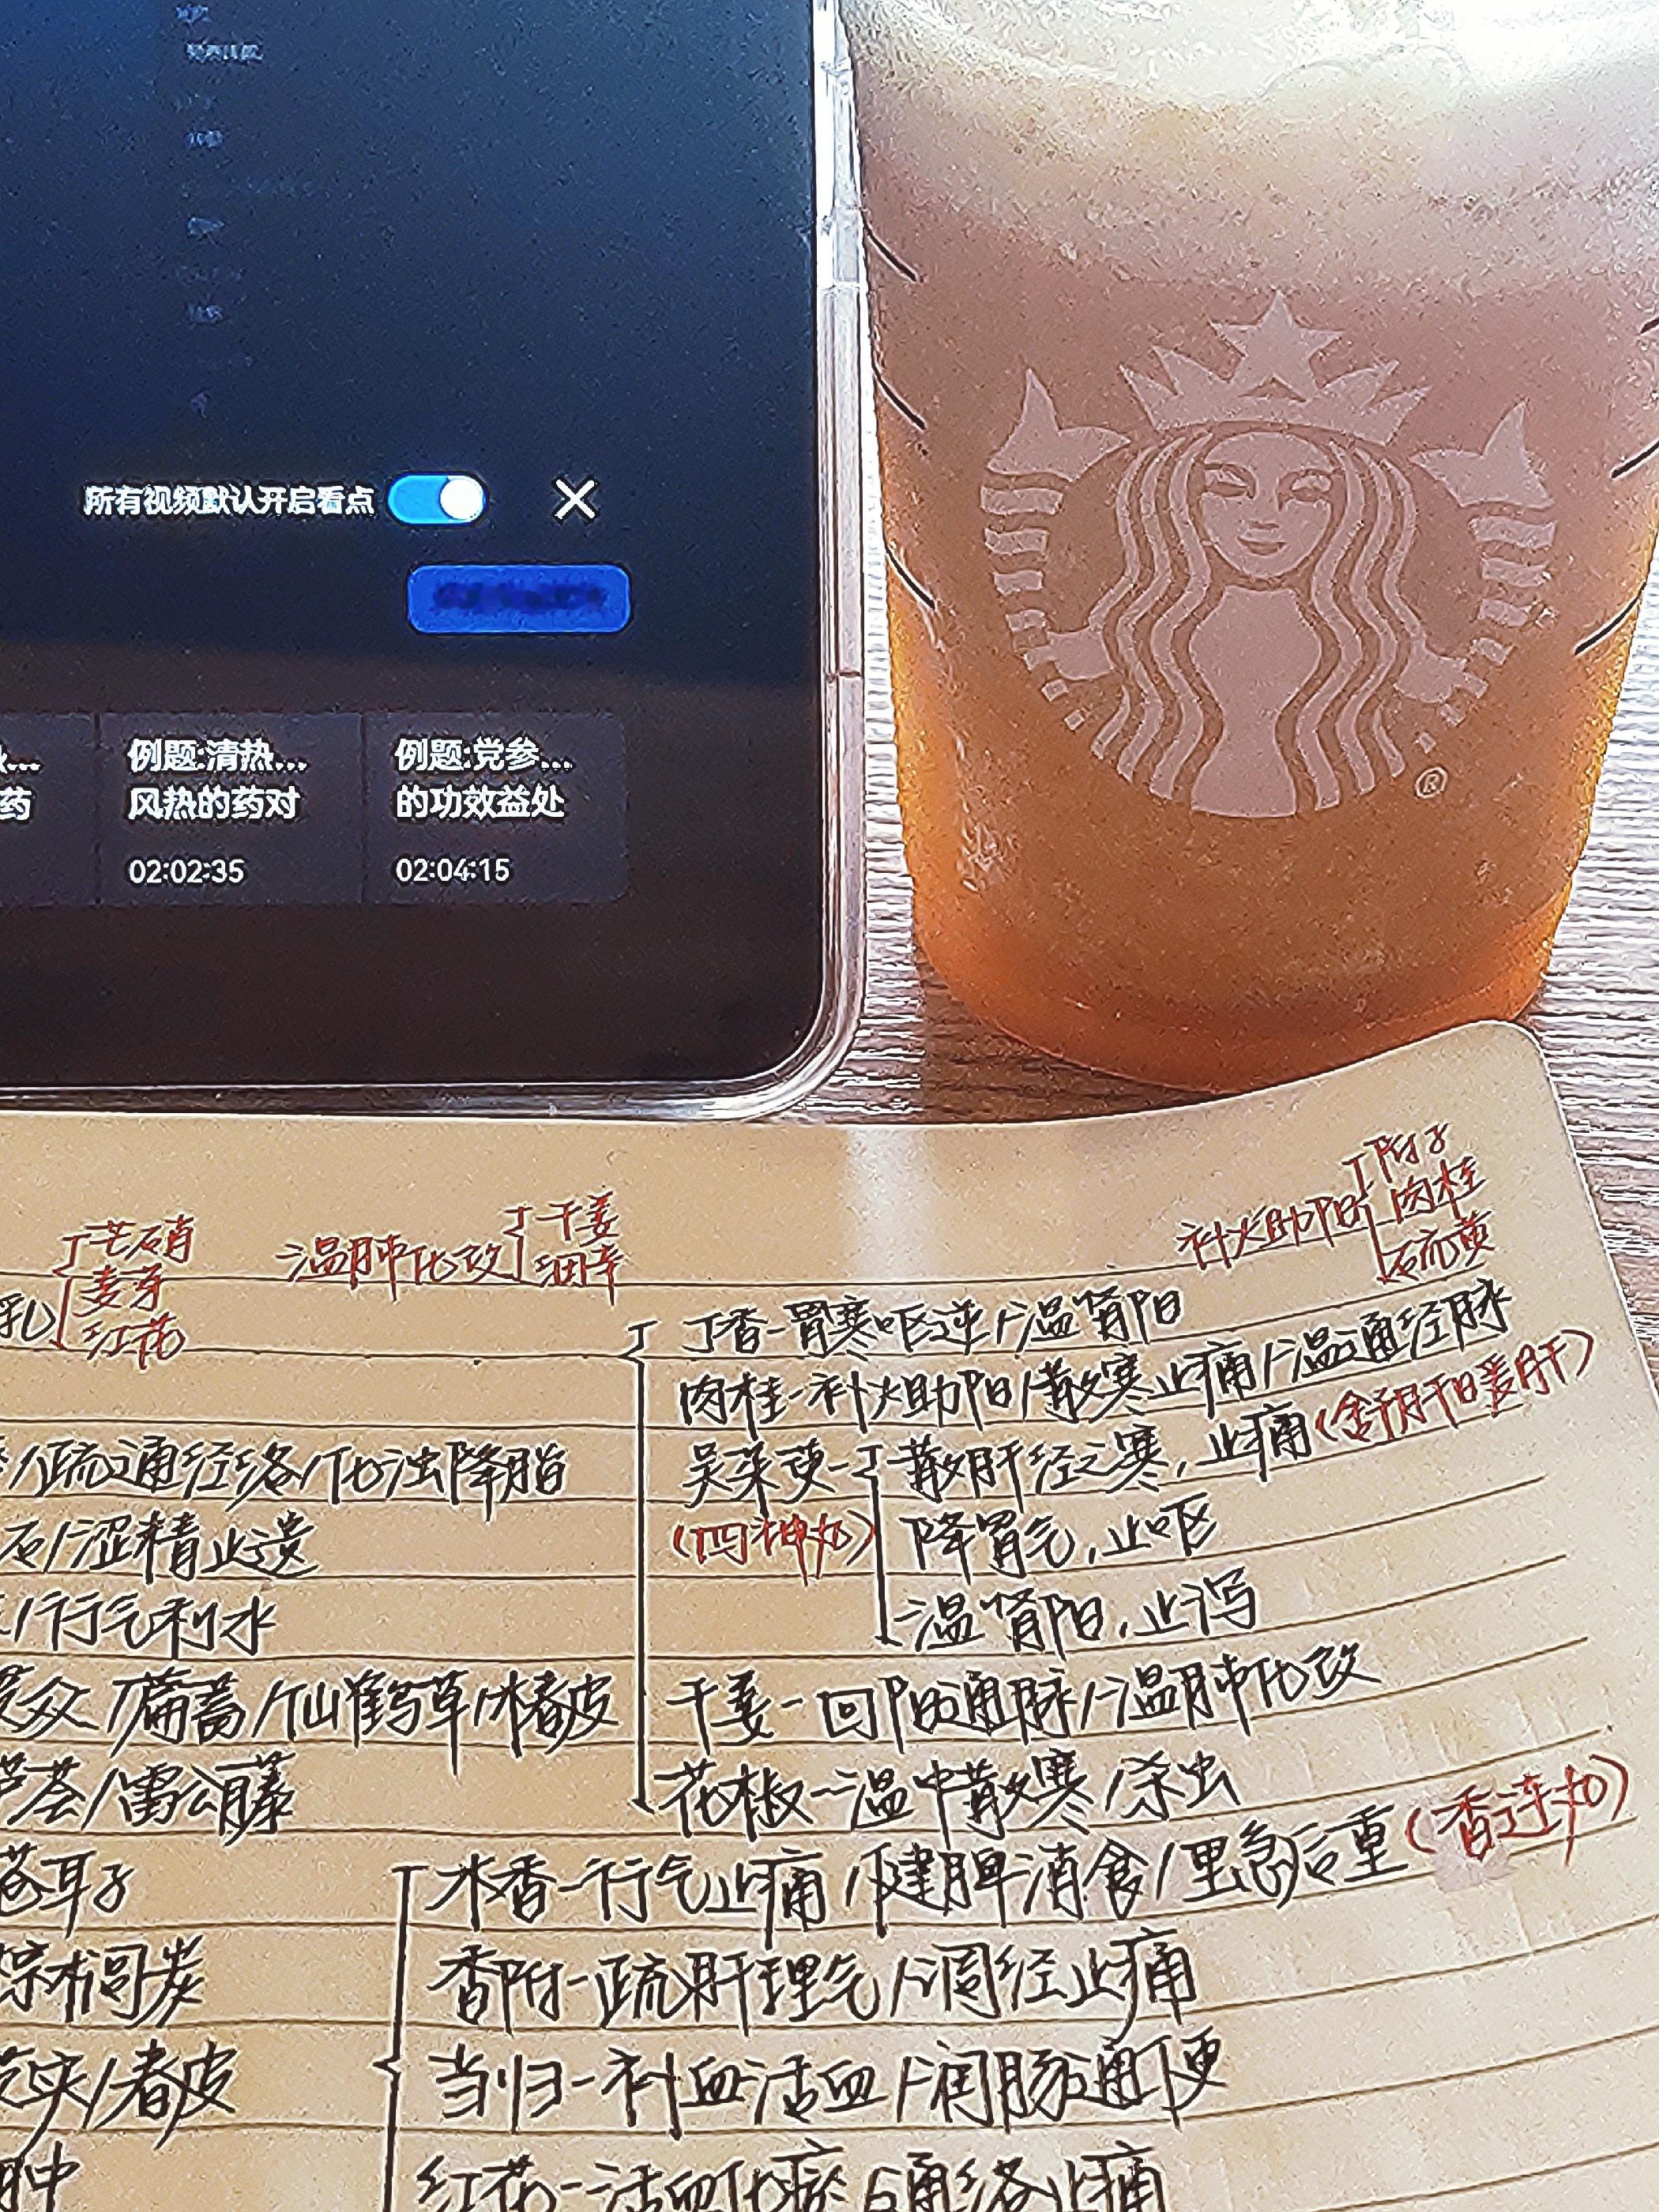 所有视频默认开启看点
例题:清热...
风热的药对
02:02:35
例题:党参...
的功效益处
02:04:15
药
®
芒硝
麦芽
红花
乳
温肺化饮
干姜
细辛
补火助阳
附子
肉桂
硫黄
丁香-胃寒呕逆/温肾阳
肉桂-补火助阳/散寒止痛/温通经脉
吴茱萸-散肝经之寒,止痛(含舒肝暖肝)
(四神丸)
降胃气,止呕
温肾阳,止泻
干姜-回阳通脉/温肺化饮
花椒-温中散寒/杀虫
/疏通经络/化浊降脂
石/涩精止遗
/行气利水
众/萹蓄/仙鹤草/椿皮
芦荟/雷公藤
苍耳子
棕榈炭
芡实/椿皮
木香-行气止痛/健脾消食/里急后重(香连丸)
香附-疏肝理气/调经止痛
当归-补血活血/润肠通便
红花-活血化瘀/通络止痛